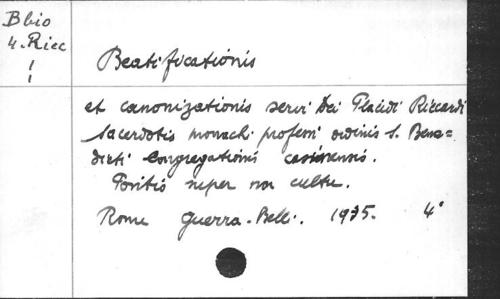 Bbio
4. Ricc
!
!
Beatificationis
et canonizationis servi Dei Placidi Riccardi
sacerdotis monachi professi ordinis S. Bene=
dicti Congregationis casinensis.
Positio super non cultu.
Rome Guerra-Belli. 1935. 4°